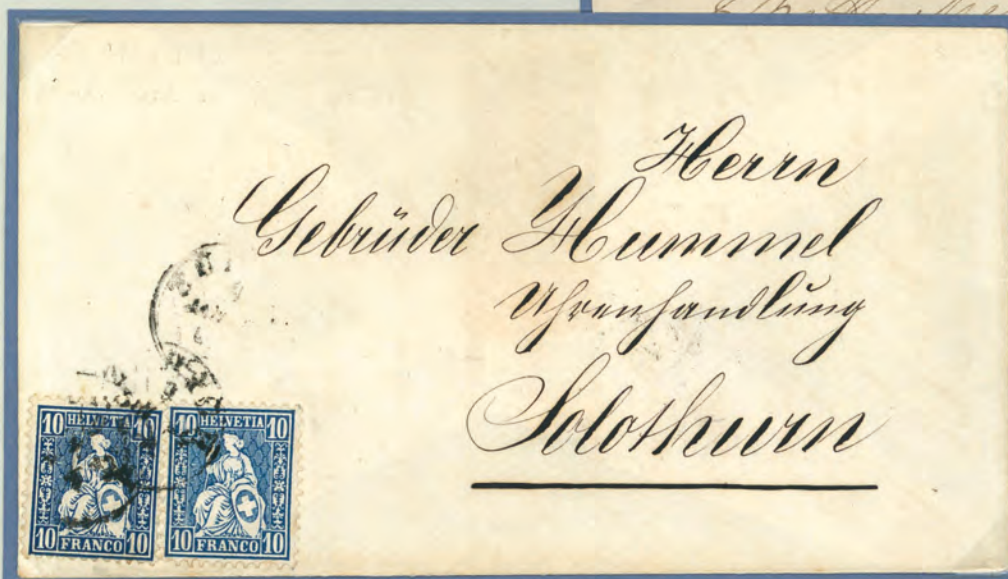 Herrn
Gebrüder Hummel
Uhrenhandlung
Solothurn
10 HELVETIA 10
10 FRANCO 10
10 HELVETIA 10
10 FRANCO 10